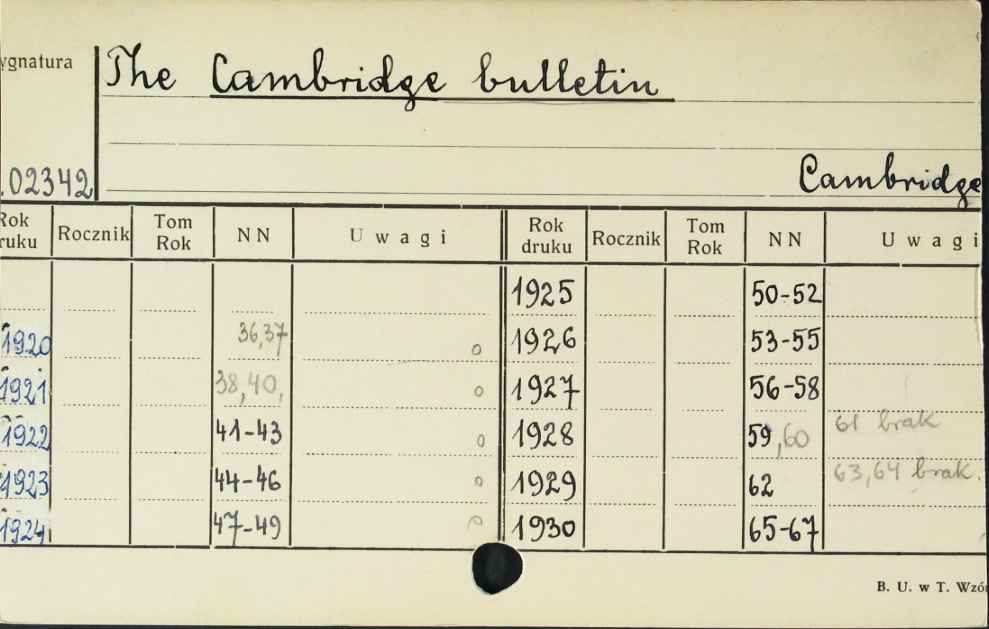 ygnatura The Cambridge bulletin
.02342 Cambridge
Rok druku Rocznik Tom Rok NN Uwagi Rok druku Rocznik Tom Rok NN Uwagi
1925 50-52
1920 36,37 o 1926 53-55
1921 38,40, o 1927 56-58
1922 41-43 o 1928 59,60 61 brak
1923 44-46 o 1929 62 63,64 brak.
1924 47-49 o 1930 65-67
B. U. w T. Wzór